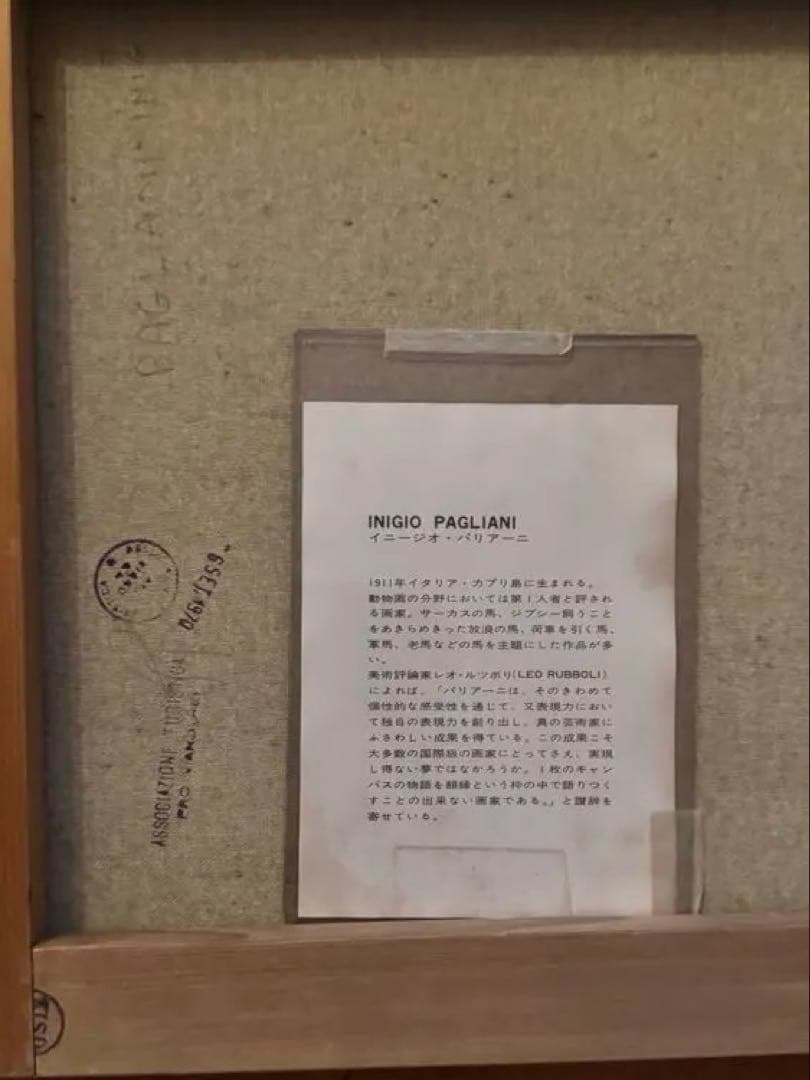 INIGIO PAGLIANI
イニージオ・パリアーニ
1911年イタリア・カプリ島に生まれる。
動物画の分野においては第1人者と評され
る画家。サーカスの馬、ジプシー飼うこと
をあきらめきった放浪の馬、荷車を引く馬、
軍馬、老馬などの馬を主題にした作品が多
い。
美術評論家レオ・ルツボリ(LEO RUBBOLI)
によれば、「パリアーニは、そのきわめて
個性的な感受性を通じて、又表現力におい
て独自の表現力を創り出し、真の芸術家に
ふさわしい成果を得ている。この成果こそ
大多数の国際級の画家にとってさえ、実現
し得ない夢ではなかろうか。1枚のキャン
バスの物語を額縁という枠の中で語りつく
すことの出来ない画家である。」と讃辞を
寄せている。
PAGLIANI
ASSOCIAZIONE
PRO